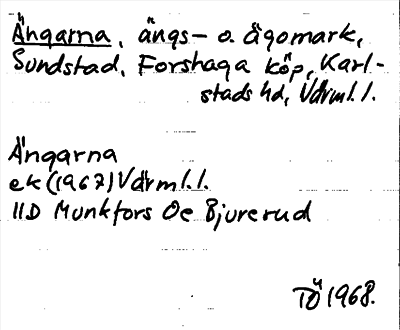 Ängarna, ängs- o. ägomark,
Sundstad, Forshaga köp, Karl-
stads hd, Vdrml.l.
Ängarna
ek (1967) Vdrml.l.
11D Munkfors Öe Bjurerud
TÖ 1968.